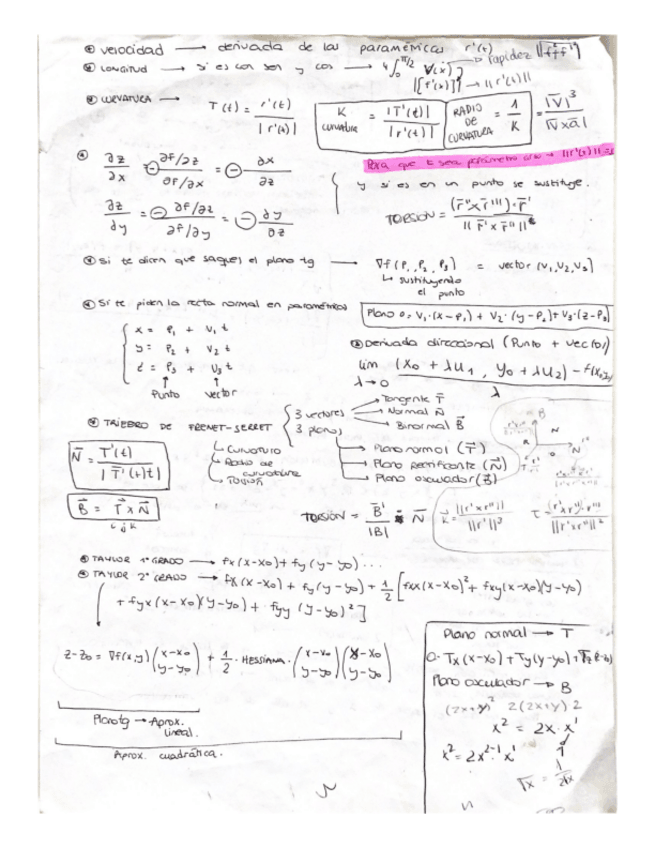 velocidad → derivada de las paramétricas r'(t)
rapidez
Longitud → si es con sen y cos → 4∫₀^π/2 V(x)
|[f'(x)]| → ||r'(t)||
CURVATURA → T(t) = r'(t) / |r'(t)|
K curvatura = |T'(t)| / |r'(t)|
RADIO DE CURVATURA = 1/K = |V̄|³ / |V̄xā|
Para que t sea parámetro arco → ||r'(t)||=
∂z/∂x = - ∂f/∂z / ∂f/∂x = - ∂x/∂z
y si es en un punto se sustituye.
∂z/∂y = - ∂f/∂z / ∂f/∂y = - ∂y/∂z
TORSIÓN = (r̄'' x r̄''')·r̄' / || r̄' x r̄'' ||²
Si te dicen que saques el plano tg → ∇f(P₁, P₂, P₃) = vector (V₁, V₂, V₃)
↳ sustituyendo el punto
Si te piden la recta normal en paramétricas
Plano 0 = V₁·(x-P₁) + V₂·(y-P₂) + V₃·(z-P₃)
x = P₁ + V₁ t
y = P₂ + V₂ t
z = P₃ + V₃ t
Punto vector
Derivada direccional (Punto + vector)
lim λ→0 (x₀ + λu₁, y₀ + λu₂) - f(x₀,y₀) / λ
TRIEDRO DE FRENET-SERRET
3 vectores
Tangente T̄
Normal N̄
Binormal B̄
3 planos
Plano normal (T̄)
Plano Rectificante (N̄)
Plano osculador (B̄)
↳ Curvatura
↳ Radio de curvatura
↳ Torsión
N̄ = T'(t) / |T̄'(t)|
B̄ = T̄ x N̄
i j k
B
N
TORSIÓN = B̄' / |B| N̄
K = ||r'xr''|| / ||r'||³
τ = (r'xr'')·r''' / ||r'xr''||²
TAYLOR 1º GRADO → fx(x-x₀) + fy(y-y₀)...
TAYLOR 2º GRADO → fx(x-x₀) + fy(y-y₀) + 1/2 [fxx(x-x₀)² + fxy(x-x₀)(y-y₀)
+ fyx(x-x₀)(y-y₀) + fyy(y-y₀)²]
z-z₀ = ∇f(x,y) (x-x₀ y-y₀) + 1/2 · HESSIANA · (x-x₀ y-y₀) (x-x₀ y-y₀)
Plano tg → Aprox. lineal.
Aprox. cuadrática.
Plano normal → T
0 = Tx(x-x₀) + Ty(y-y₀) + Tz(z-z₀)
Plano osculador → B
(2x+y)² 2(2x+y) 2
x² = 2x · x'
x² = 2x²⁻¹ x'
√x = 1/2x